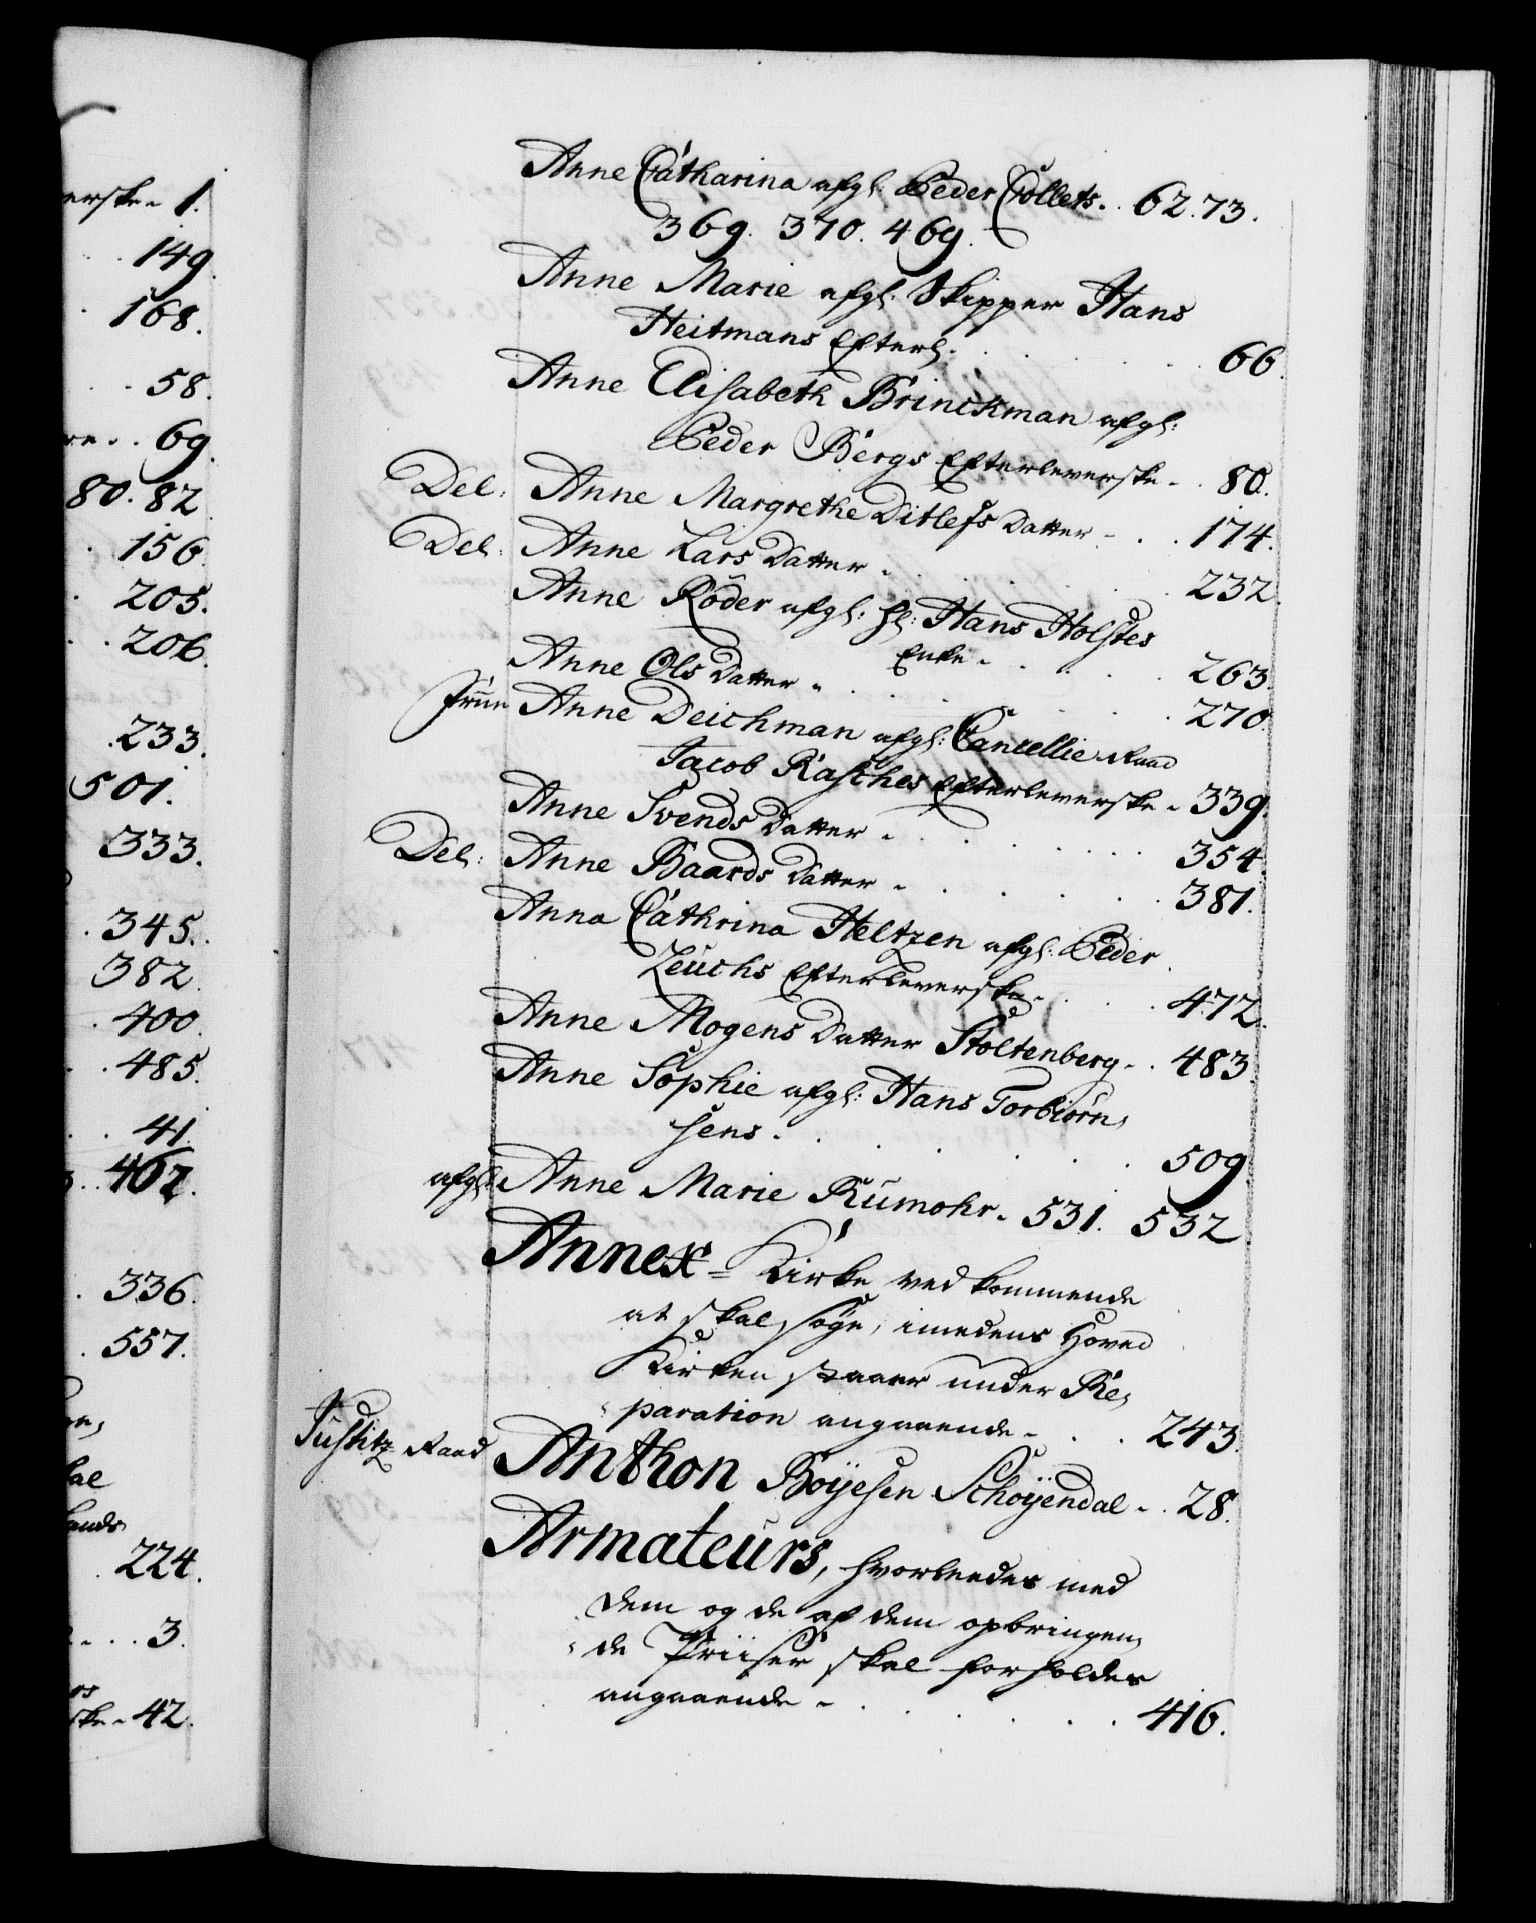 erske. 1.
149.
168.
58.
69.
80. 82.
156.
205.
206.
233.
501.
333.
345.
382.
400.
485.
41.
467.
336.
557.
224.
3.
ske. 42.
Anne Catharina afgl: Peder Collets. 62. 73.
369. 370. 469.
Anne Marie afgl: Skipper Hans
Heitmans Efterl. 66.
Anne Elisabeth Brinckman afgl:
Peder Bergs Efterleverske. 80.
Del: Anne Margrethe Ditlefs Datter. 174.
Del: Anne Lars Datter. 232.
Anne Röder afgl: Hl: Hans Holstes
Enke. 263.
Anne Ols Datter. 270.
Frue Anne Deichman afgl: Cancellie Raad
Jacob Rasches Efterleverske. 339.
Anne Svends Datter. 354.
Del: Anne Baards Datter. 381.
Anna Cathrina Heltzen afgl: Peder
Zeuchs Efterleverske. 472.
Anne Mogens Datter Stoltenberg. 483.
Anne Sophie afgl: Hans Torbiörn,
sens. 509.
afgl: Anne Marie Rumohr. 531. 532.
Annex = Kirke vedkommende
at skal söge, imedens Hoved
Kirken staaer under Re,
paration angaaende. 243.
Justitz Raad Anthon Böyesen Schöyendal. 28.
Armateurs, hvorledes med
dem og de af dem opbringen,
de Priiser skal forholdes
angaaende. 416.